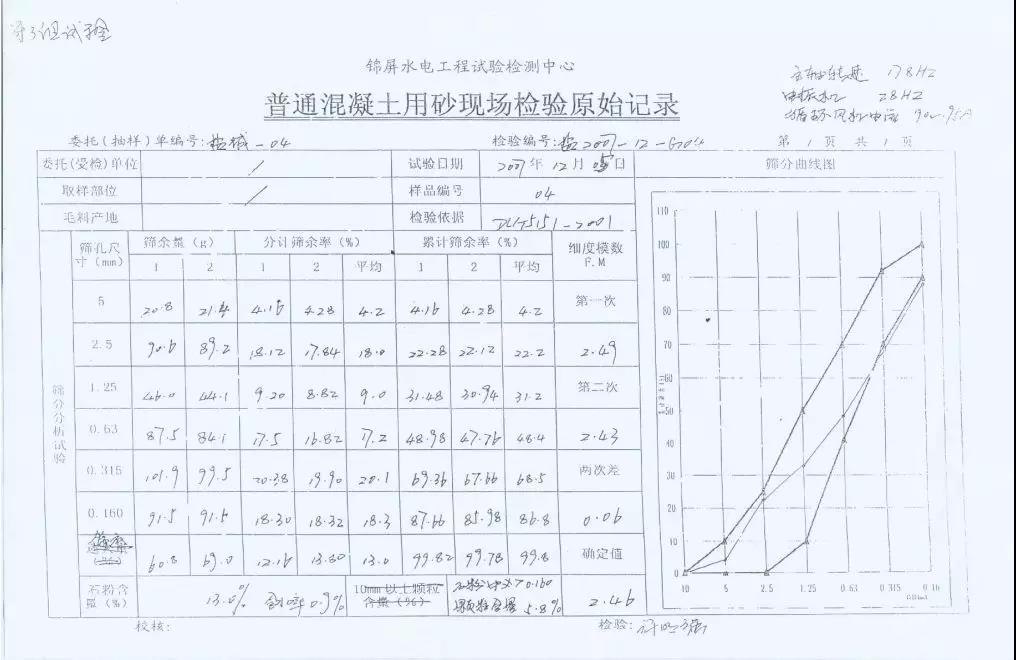 第3组试验
锦屏水电工程试验检测中心
主轴转速 178HZ
28HZ
循环风机电流 90~95A
普通混凝土用砂现场检验原始记录
委托(抽样)单编号: -04 检验编号: 2007-12-G04 第 1 页 共 1 页
委托(受检)单位 / 试验日期 2007年12月05日 筛分曲线图
取样部位 / 样品编号 04
毛料产地 检验依据 DL/T5151-2001
筛分分析试验
筛孔尺寸(mm) 筛余量(g) 分计筛余率(%) 累计筛余率(%) 细度模数F.M
1 2 1 2 平均 1 2 平均
5 20.8 21.4 4.16 4.28 4.2 4.16 4.28 4.2 第一次
2.5 90.6 89.2 18.12 17.84 18.0 22.28 22.12 22.2 2.49
1.25 46.0 44.1 9.20 8.82 9.0 31.48 30.94 31.2 第二次
0.63 87.5 84.1 17.5 16.82 17.2 48.98 47.76 48.4 2.43
0.315 101.9 99.5 20.38 19.90 20.1 69.36 67.66 68.5 两次差
0.160 91.5 91.6 18.30 18.32 18.3 87.66 85.98 86.8 0.06
60.8 69.0 12.16 13.80 13.0 99.82 99.78 99.8 确定值
石粉含量(%) 13.0% 0.9% 10mm以上颗粒含量(%) 石粉中大于0.160颗粒含量5.8% 2.46
110
100
90
80
70
60
50
40
30
20
10
0
10 5 2.5 1.25 0.63 0.315 0.16
校核: 检验: